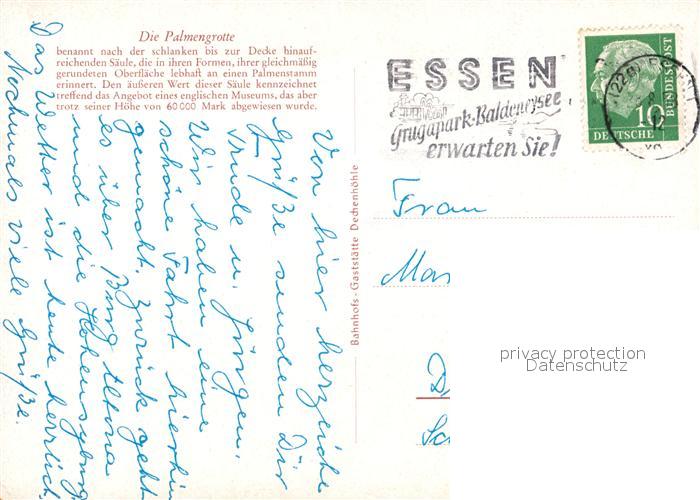 Die Palmengrotte
benannt nach der schlanken bis zur Decke hinauf-
reichenden Säule, die in ihren Formen, ihrer gleichmäßig
gerundeten Oberfläche lebhaft an einen Palmenstamm
erinnert. Den äußeren Wert dieser Säule kennzeichnet
treffend das Angebot eines englischen Museums, das aber
trotz seiner Höhe von 60 000 Mark abgewiesen wurde.
Von hier herzliche
Grüße senden Dir
Trude u. Jürgen.
Wir haben eine
schöne Fahrt hierhin
gemacht. Zurück geht
es über Burg Altena
und die Hohensyburg
Das Wetter ist heute herrlich
Nochmals viele Grüße.
Bahnhofs-Gaststätte Dechenhöhle
ESSEN
Grugapark-Baldeneysee
erwarten Sie!
(22a) ESSEN
10
DEUTSCHE
BUNDESPOST
Frau
Mar
D
Sc
privacy protection
Datenschutz